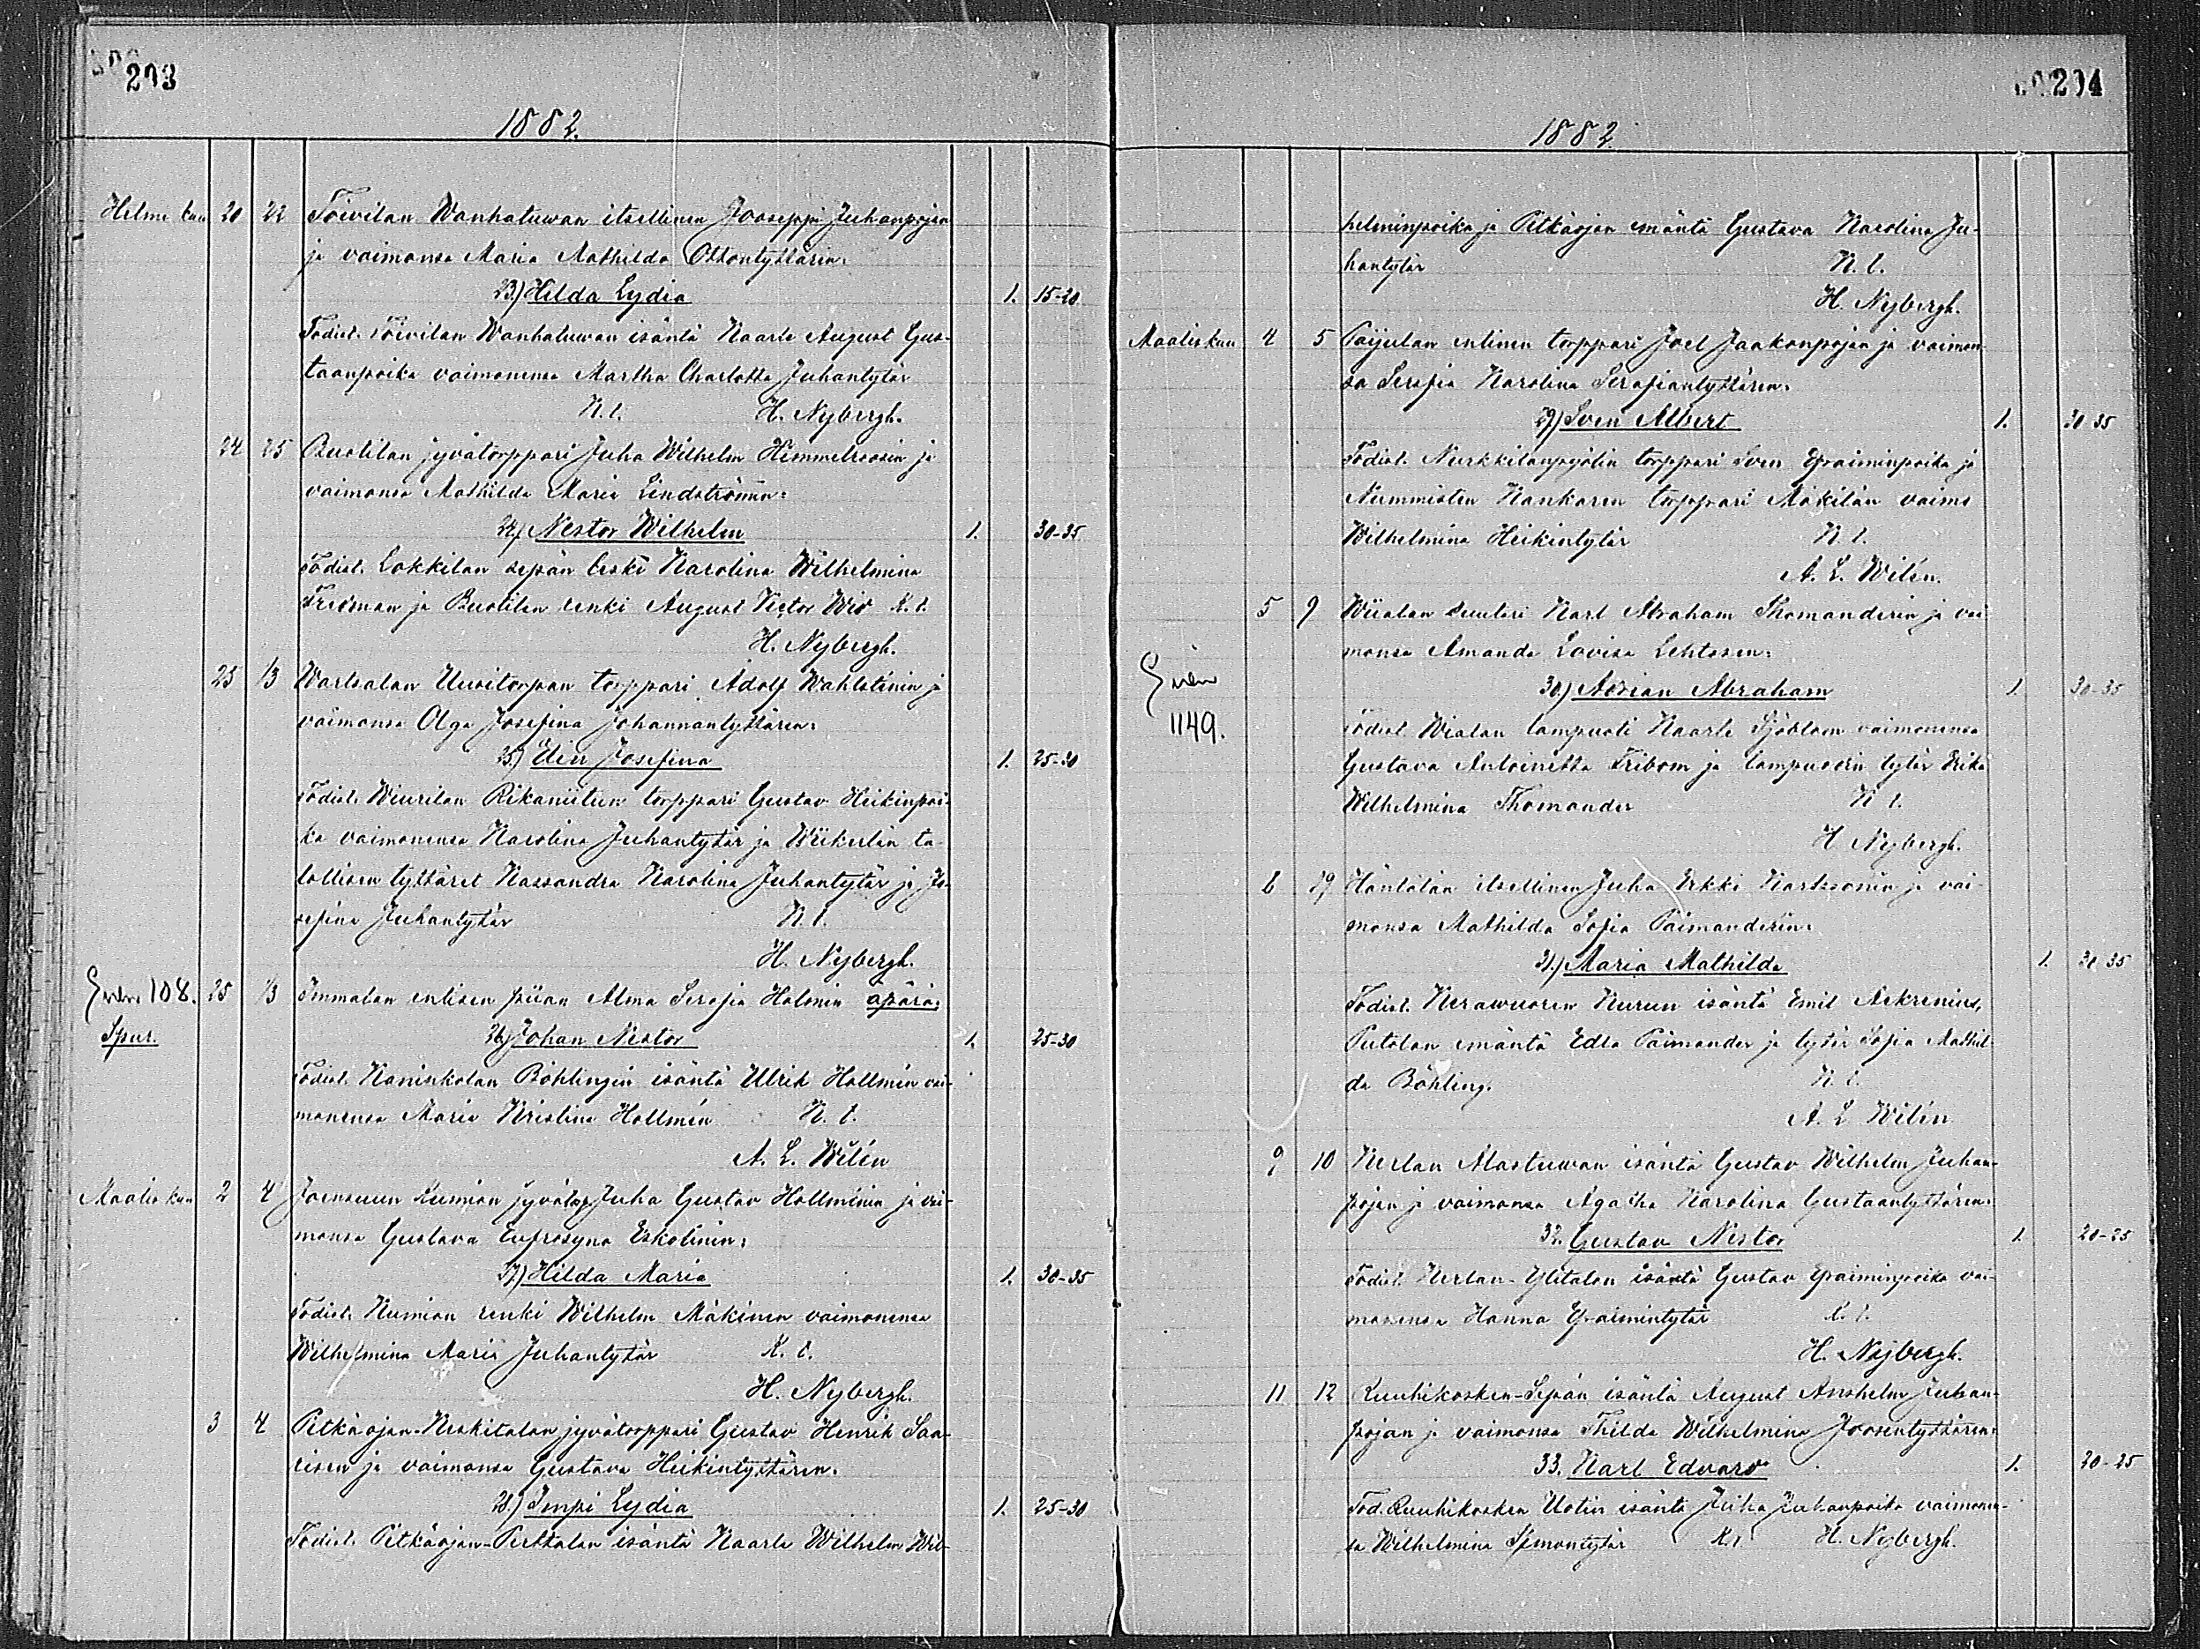 203
1882.
Helmi kuu 20 22 Toivilan Wanhatuwan itsellinen Jooseppi Juhanpojan
ja vaimonsa Maria Mathilda Ottontyttären:
23.) Hilda Lydia 1. 15-20
Todist. Toivilan Wanhatuwan isäntä Kaarle August Gus-
taanpoika vaimonensa Martha Charlotta Juhantytär
K. t. H. Nybergh.
24 25 Ruotilan jyvätorppari Juha Wilhelm Himmelroosin ja
vaimonsa Mathilda Maria Lindströmin:
24.) Nestor Wilhelm 1. 30-35
Todist. Lokkilan sepän leski Karolina Wilhelmina
Friman ja Ruotilan renki August Victor Wio K. t.
H. Nybergh.
25 1/3 Wartsalan Uusitorpan torppari Adolf Wahlsténin ja
vaimonsa Olga Josefina Johannantyttären:
25.) Elin Josefina 1. 25-30
Todist. Wiurilan Rikaniitun torppari Gustav Heikinpoi-
ka vaimonensa Karolina Juhantytär ja Wiikerlän ta-
lollisen tyttäret Kassandra Karolina Juhantytär ja Jo-
sefina Juhantytär K. t.
H. Nybergh.
108. 25 1/3 Immalan entisen piian Alma Serafia Holmin äpärä:
Spur. 26.) Johan Nestor 1. 25-30
Todist. Kaniskolan Böhlingin isäntä Ulrik Hollmén vai-
monensa Maria Kristina Hollmén K. t.
A. L. Wilén
Maalis kuu 2 4 Joensuun Kumion jyvätop. Juha Gustav Hollménin ja vai-
monsa Gustava Eufrosyna Eskolinin:
27.) Hilda Maria 1. 30-35
Todist. Kumion renki Wilhelm Mäkinen vaimonensa
Wilhelmina Maria Juhantytär K. t.
H. Nybergh.
3 4 Pitkäojan-Keskitalon jyvätorppari Gustav Henrik Saa-
risen ja vaimonsa Gustava Heikintyttären.
28.) Impi Lydia 1. 25-30
Todist. Pitkäojan-Perttalan isäntä Kaarle Wilhelm Wil-
204
1882
helminpoika ja Pitkäojan emäntä Gustava Karolina Ju-
hantytär K. t.
H. Nybergh.
Maaliskuu 4 5 Päijulan entinen torppari Joel Jaakonpojan ja vaimon-
sa Serafia Karolina Serafiantyttären:
29.) Sven Albert 1. 30 35
Todist. Kerkkilanpyölin torppari Sven Efraiminpoika ja
Nummisten Kankaren torppari Mäkilän vaimo
Wilhelmina Heikintytär K. t.
A. L. Wilén.
5 9 Wiialan suutari Karl Abraham Thomanderin ja vai
monsa Amanda Lovisa Lehtosen:
30.) Adrian Abraham 1. 30-35
1149. Todist. Wialan lampuoti Kaarle Sjöblom vaimonensa
Gustava Antoinetta Tribom ja lampuodin tytär Erika
Wilhelmina Thomander K. t.
H. Nybergh.
6 19 Häntälän itsellinen Juha Erkki Karlssonin ja vai-
monsa Mathilda Sofia Paimanderin:
31.) Maria Mathilda 1. 30 35
Todist. Kerawuoren Kurun isäntä Emil Aekrenius,
Putolan emäntä Edla Paimander ja tytär Sofia Mathil
da Böhling. K. t.
A. L. Wilén
9 10 Kerlan Alastuwan isäntä Gustav Wilhelm Juhan-
pojan ja vaimonsa Agatha Karolina Gustaantyttären:
32. Gustav Nestor 1. 20-25
Todist. Kerlan-Ylitalon isäntä Gustav Efraiminpoika vai-
monensa Hanna Efraimintytär K. t.
H. Nybergh.
11 12 Kuuhikosken-Sepän isäntä August Anshelm Juhan-
pojan ja vaimonsa Thilda Wilhelmina Joosentyttären:
33. Karl Edvard 1. 20-25
Tod. Ruuhikosken Uotin isäntä Juha Juhanpoika vaimonen-
sa Wilhelmina Simontytär K. t. H. Nybergh.